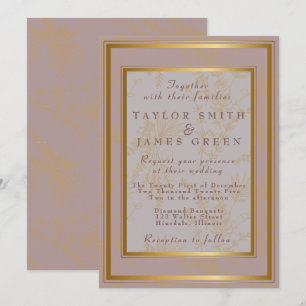 Together
with their families
TAYLOR SMITH
&
JAMES GREEN
Request your presence
at their wedding
The Twenty First of December
Two Thousand Twenty Two
Two in the afternoon
Diamond Banquets
123 Walter Street
Hinsdale, Illinois
Reception to follow